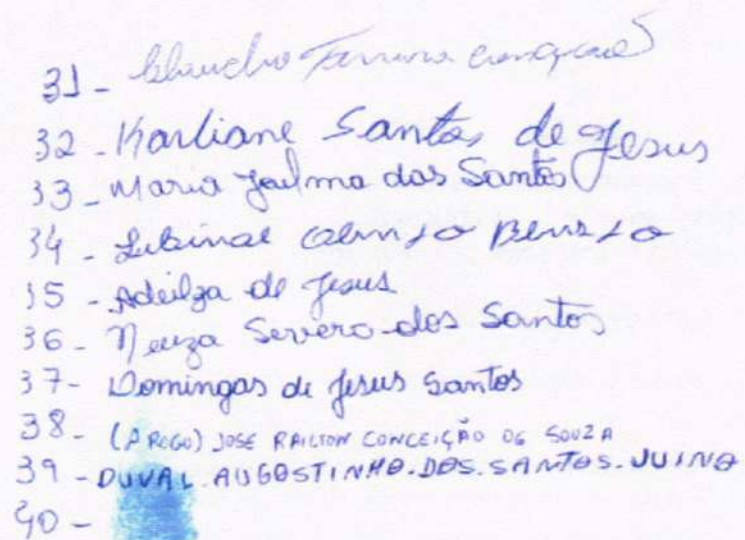 31-
32-Karliane Santos de Jesus
33-Maria Jailma dos Santos
34-
35-Adeilza de Jesus
36-Neuza Severo dos Santos
37-Domingas de Jesus Santos
38-(A ROGO) JOSE RAILTON CONCEIÇÃO DE SOUZA
39-DUVAL.AUGOSTINHO.DOS.SANTOS.JUINO
40-